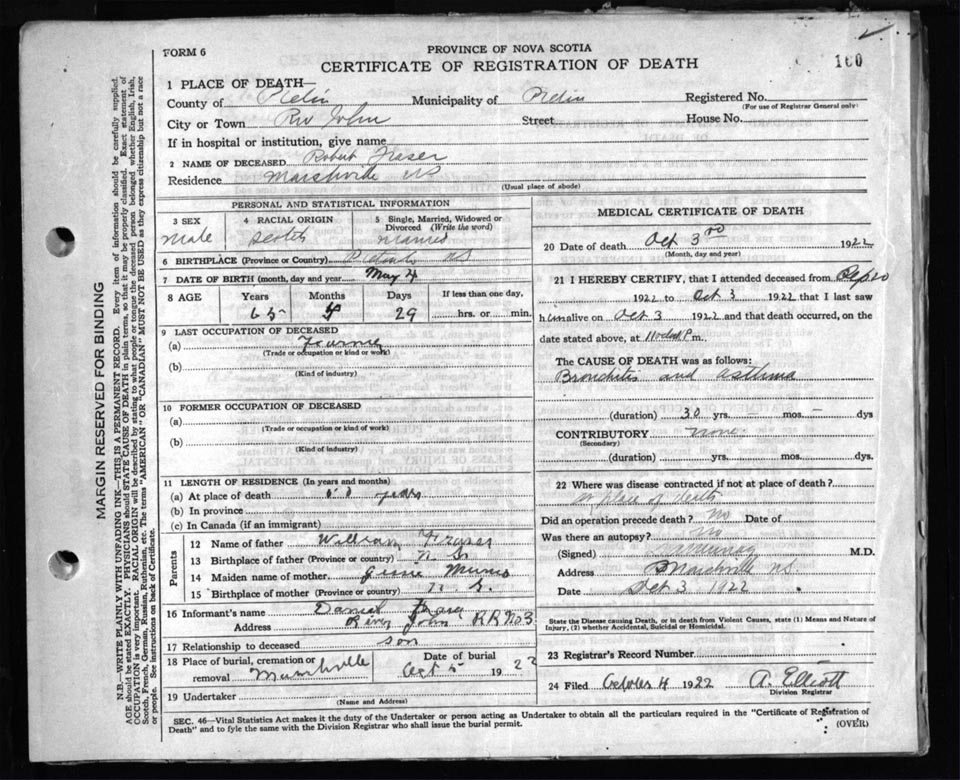 FORM 6
PROVINCE OF NOVA SCOTIA
CERTIFICATE OF REGISTRATION OF DEATH
160
1 PLACE OF DEATH—
County of Municipality of Registered No.
(For use of Registrar General only)
City or Town Riv John Street House No.
If in hospital or institution, give name
2 NAME OF DECEASED Robert Fraser
Residence Marshville NS
(Usual place of abode)
PERSONAL AND STATISTICAL INFORMATION
3 SEX 4 RACIAL ORIGIN 5 Single, Married, Widowed or Divorced (Write the word)
Male Scotch Married
6 BIRTHPLACE (Province or Country) NS
7 DATE OF BIRTH (month, day and year) May 4
8 AGE Years Months Days If less than one day,
65 4 29 hrs. or min.
9 LAST OCCUPATION OF DECEASED
(a) Farmer
(Trade or occupation or kind of work)
(b)
(Kind of industry)
10 FORMER OCCUPATION OF DECEASED
(a)
(Trade or occupation or kind of work)
(b)
(Kind of industry)
11 LENGTH OF RESIDENCE (In years and months)
(a) At place of death years
(b) In province
(c) In Canada (if an immigrant)
Parents
12 Name of father William Fraser
13 Birthplace of father (Province or country) N. S.
14 Maiden name of mother Munro
15 Birthplace of mother (Province or country) N. S.
16 Informant's name Daniel Fraser
Address River John RR No 3
17 Relationship to deceased son
18 Place of burial, cremation or removal Marshville Date of burial Oct 5 1922
19 Undertaker
(Name and Address)
MEDICAL CERTIFICATE OF DEATH
20 Date of death Oct 3rd 1922
(Month, day and year)
21 I HEREBY CERTIFY, that I attended deceased from Sep 20
1922 to Oct 3 1922 that I last saw
him alive on Oct 3 1922 and that death occurred, on
date stated above, at 11 o'clock P m.
The CAUSE OF DEATH was as follows:
Bronchitis and asthma
(duration) 30 yrs. mos. – dys
CONTRIBUTORY none
(Secondary)
(duration) yrs. mos. dys.
22 Where was disease contracted if not at place of death?
at place of death
Did an operation precede death? No Date of
Was there an autopsy? No
(Signed) M.D.
Address Marshville NS
Date Oct 3 1922
State the Disease causing Death, or in death from Violent Causes, state (1) Means and Nature of Injury, (2) whether Accidental, Suicidal or Homicidal.
23 Registrar's Record Number
24 Filed October 4 1922 A. Elliott
Division Registrar
SEC. 46—Vital Statistics Act makes it the duty of the Undertaker or person acting as Undertaker to obtain all the particulars required in the "Certificate of Registration of
Death" and to fyle the same with the Division Registrar who shall issue the burial permit.
(OVER)
MARGIN RESERVED FOR BINDING
N.B.—WRITE PLAINLY WITH UNFADING INK—THIS IS A PERMANENT RECORD. Every item of information should be carefully supplied.
AGE should be stated EXACTLY. PHYSICIANS should STATE CAUSE OF DEATH in plain terms, so that it may be properly classified. Exact statement of
OCCUPATION is very important. RACIAL ORIGIN will be described by stating to what people or tongue the deceased person belonged whether English, Irish,
Scotch, French, German, Russian, Ruthenian, etc. The terms "AMERICAN" OR "CANADIAN" MUST NOT BE USED as they express citizenship but not a race
or people. See instructions on back of Certificate.